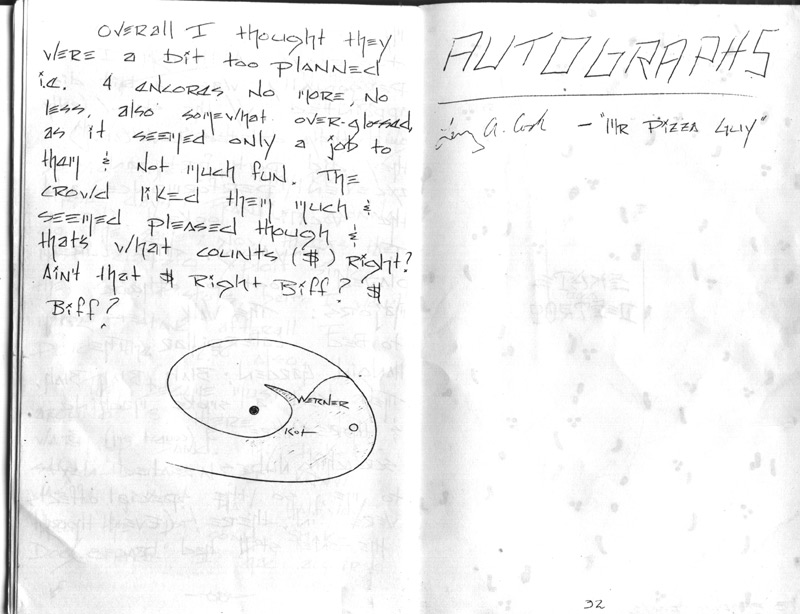 OVERALL I thought they
WERE a bit too PLANNED
i.e. 4 ENCORES NO MORE, NO
LESS, also somewhat over-glossed,
as it seemed only a job to
them & Not much fun. The
CROWD liked them much &
SEEMED PLEASED though &
thats what COUNTS ($) Right?
Ain't that $ Right BIFF? $
BIFF?
WERNER
KOT
AUTOGRAPHS
A. — "MR PIZZA GUY"
32